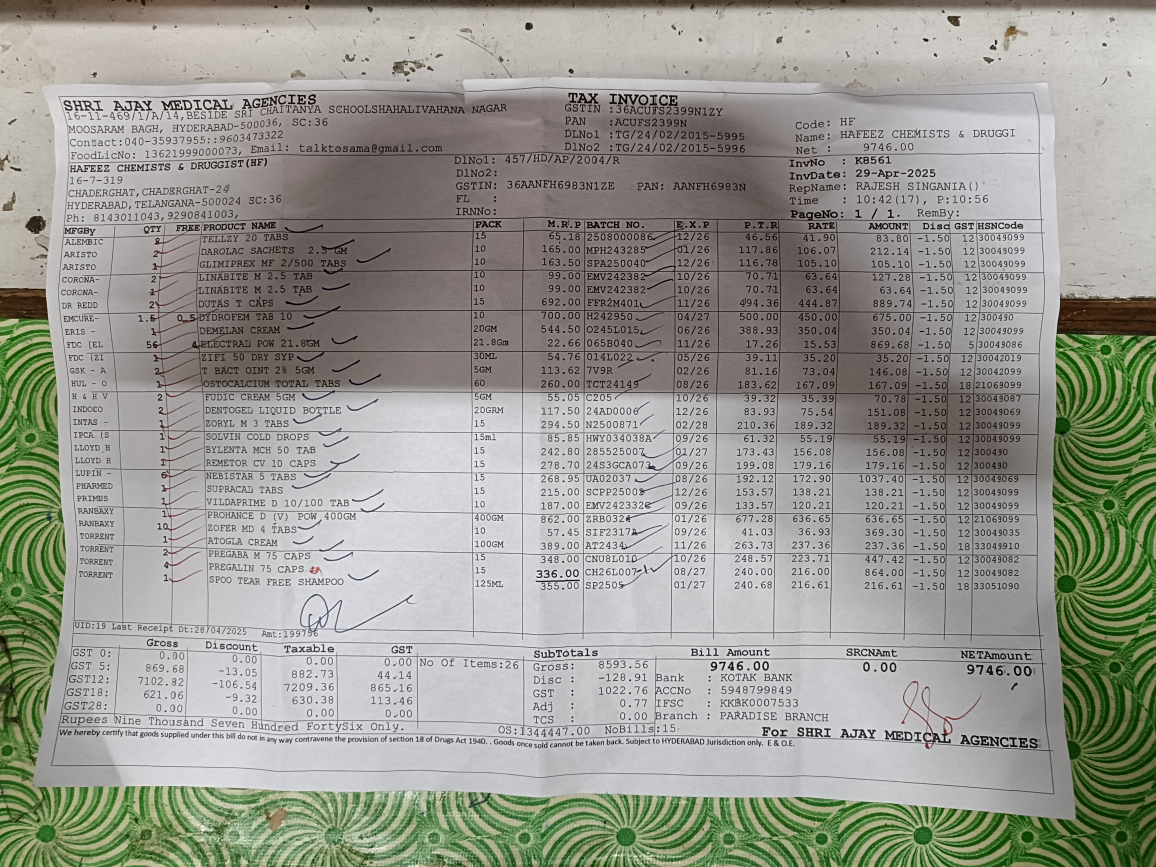 SHRI AJAY MEDICAL AGENCIES
16-11-469/1/A/14,BESIDE SRI CHAITANYA SCHOOLSHAHALIVAHANA NAGAR
MOOSARAM BAGH, HYDERABAD-500036, SC:36
Contact:040-35937955::9603473322
FoodLicNo: 13621999000073, Email: talktosama@gmail.com
TAX INVOICE
GSTIN :36ACUFS2399N1ZY
PAN :ACUFS2399N
DLNo1 :TG/24/02/2015-5995
DLNo2 :TG/24/02/2015-5996
Code: HF
Name: HAFEEZ CHEMISTS & DRUGGI
Net : 9746.00
HAFEEZ CHEMISTS & DRUGGIST(HF)
16-7-319
CHADERGHAT,CHADERGHAT-24
HYDERABAD,TELANGANA-500024 SC:36
Ph: 8143011043,9290841003,
DlNo1: 457/HD/AP/2004/R
DlNo2:
GSTIN: 36AANFH6983N1ZE PAN: AANFH6983N
FL :
IRNNo:
InvNo : K8561
InvDate: 29-Apr-2025
RepName: RAJESH SINGANIA()
Time : 10:42(17), P:10:56
PageNo: 1 / 1. RemBy:
MFGBy QTY FREE PRODUCT NAME PACK M.R.P BATCH NO. E.X.P P.T.R RATE AMOUNT Disc GST HSNCode
ALEMBIC 2 TELLZY 20 TABS 15 65.18 2508000086 12/26 46.56 41.90 83.80 -1.50 12 30049099
ARISTO 2 DAROLAC SACHETS 2.5 GM 10 165.00 MPH243285 01/26 117.86 106.07 212.14 -1.50 12 30049099
ARISTO 1 GLIMIPREX MF 2/500 TABS 10 163.50 SPA250040 12/26 116.78 105.10 105.10 -1.50 12 30049099
CORONA- 2 LINABITE M 2.5 TAB 10 99.00 EMV242382 10/26 70.71 63.64 127.28 -1.50 12 30049099
CORONA- 1 LINABITE M 2.5 TAB 10 99.00 EMV242382 10/26 70.71 63.64 63.64 -1.50 12 30049099
DR REDD 2 DUTAS T CAPS 15 692.00 FFR2M401 11/26 494.36 444.87 889.74 -1.50 12 30049099
EMCURE- 1.5 0.5 DYDROFEM TAB 10 10 700.00 H242950 04/27 500.00 450.00 675.00 -1.50 12 300490
ERIS - 1 DEMELAN CREAM 20GM 544.50 O245L015 06/26 388.93 350.04 350.04 -1.50 12 30049099
FDC [EL 56 4 ELECTRAL POW 21.8GM 21.8Gm 22.66 065B040 11/26 17.26 15.53 869.68 -1.50 5 30049086
FDC (ZI 1 ZIFI 50 DRY SYP 30ML 54.76 014L022 05/26 39.11 35.20 35.20 -1.50 12 30042019
GSK - A 2 T BACT OINT 2% 5GM 5GM 113.62 7V9R 02/26 81.16 73.04 146.08 -1.50 12 30042099
HUL - O 1 OSTOCALCIUM TOTAL TABS 60 260.00 TCT24149 08/26 183.62 167.09 167.09 -1.50 18 21069099
H & H V 2 FUDIC CREAM 5GM 5GM 55.05 C205 10/26 39.32 35.39 70.78 -1.50 12 30049087
INDOCO 2 DENTOGEL LIQUID BOTTLE 20GRM 117.50 24AD0006 12/26 83.93 75.54 151.08 -1.50 12 30049069
INTAS - 1 ZORYL M 3 TABS 15 294.50 N2500871 02/28 210.36 189.32 189.32 -1.50 12 30049099
IPCA (S 1 SOLVIN COLD DROPS 15ml 85.85 HWY034038A 09/26 61.32 55.19 55.19 -1.50 12 30049099
LLOYD H 1 BYLENTA MCH 50 TAB 15 242.80 285525007 01/27 173.43 156.08 156.08 -1.50 12 300490
LLOYD H 1 REMETOR CV 10 CAPS 15 278.70 24S3GCA073 09/26 199.08 179.16 179.16 -1.50 12 300490
LUPIN - 6 NEBISTAR 5 TABS 15 268.95 UA02037 08/26 192.12 172.90 1037.40 -1.50 12 30049069
PHARMED 1 SUPRACAL TABS 15 215.00 SCPP25009 12/26 153.57 138.21 138.21 -1.50 12 30049099
PRIMUS 1 VILDAPRIME D 10/100 TAB 10 187.00 EMV242332 09/26 133.57 120.21 120.21 -1.50 12 30049099
RANBAXY 1 PROHANCE D (V) POW 400GM 400GM 862.00 ZRB0324 01/26 677.28 636.65 636.65 -1.50 12 21069099
RANBAXY 10 ZOFER MD 4 TABS 10 57.45 SIF2317A 09/26 41.03 36.93 369.30 -1.50 12 30049035
TORRENT 1 ATOGLA CREAM 100GM 389.00 AT2434 11/26 263.73 237.36 237.36 -1.50 18 33049910
TORRENT 2 PREGABA M 75 CAPS 15 348.00 CNU8L010 10/26 248.57 223.71 447.42 -1.50 12 30049082
TORRENT 4 PREGALIN 75 CAPS 15 336.00 CH26L007 08/27 240.00 216.00 864.00 -1.50 12 30049082
TORRENT 1 SPOO TEAR FREE SHAMPOO 125ML 355.00 SP2505 01/27 240.68 216.61 216.61 -1.50 18 33051090
UID:19 Last Receipt Dt:28/04/2025 Amt:199756
Gross Discount Taxable GST
GST 0: 0.00 0.00 0.00 0.00
GST 5: 869.68 -13.05 882.73 44.14
GST12: 7102.82 -106.54 7209.36 865.16
GST18: 621.06 -9.32 630.38 113.46
GST28: 0.00 0.00 0.00 0.00
No Of Items:26
SubTotals
Gross: 8593.56
Disc : -128.91
GST : 1022.76
Adj : 0.77
TCS : 0.00
Bill Amount
9746.00
Bank : KOTAK BANK
ACCNo : 5948799849
IFSC : KKBK0007533
Branch : PARADISE BRANCH
SRCNAmt
0.00
NETAmount
9746.00
Rupees Nine Thousand Seven Hundred FortySix Only.
OS:1344447.00 NoBills:15
For SHRI AJAY MEDICAL AGENCIES
We hereby certify that goods supplied under this bill do not in any way contravene the provision of section 18 of Drugs Act 1940. . Goods once sold cannot be taken back. Subject to HYDERABAD Jurisdiction only. E & O.E.